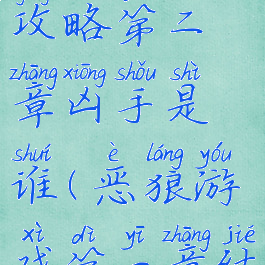 攻略第二
zhāng xiōng shǒu shì
章凶手是
shuí è láng yóu
谁(恶狼游
xì dì yī zhāng jié